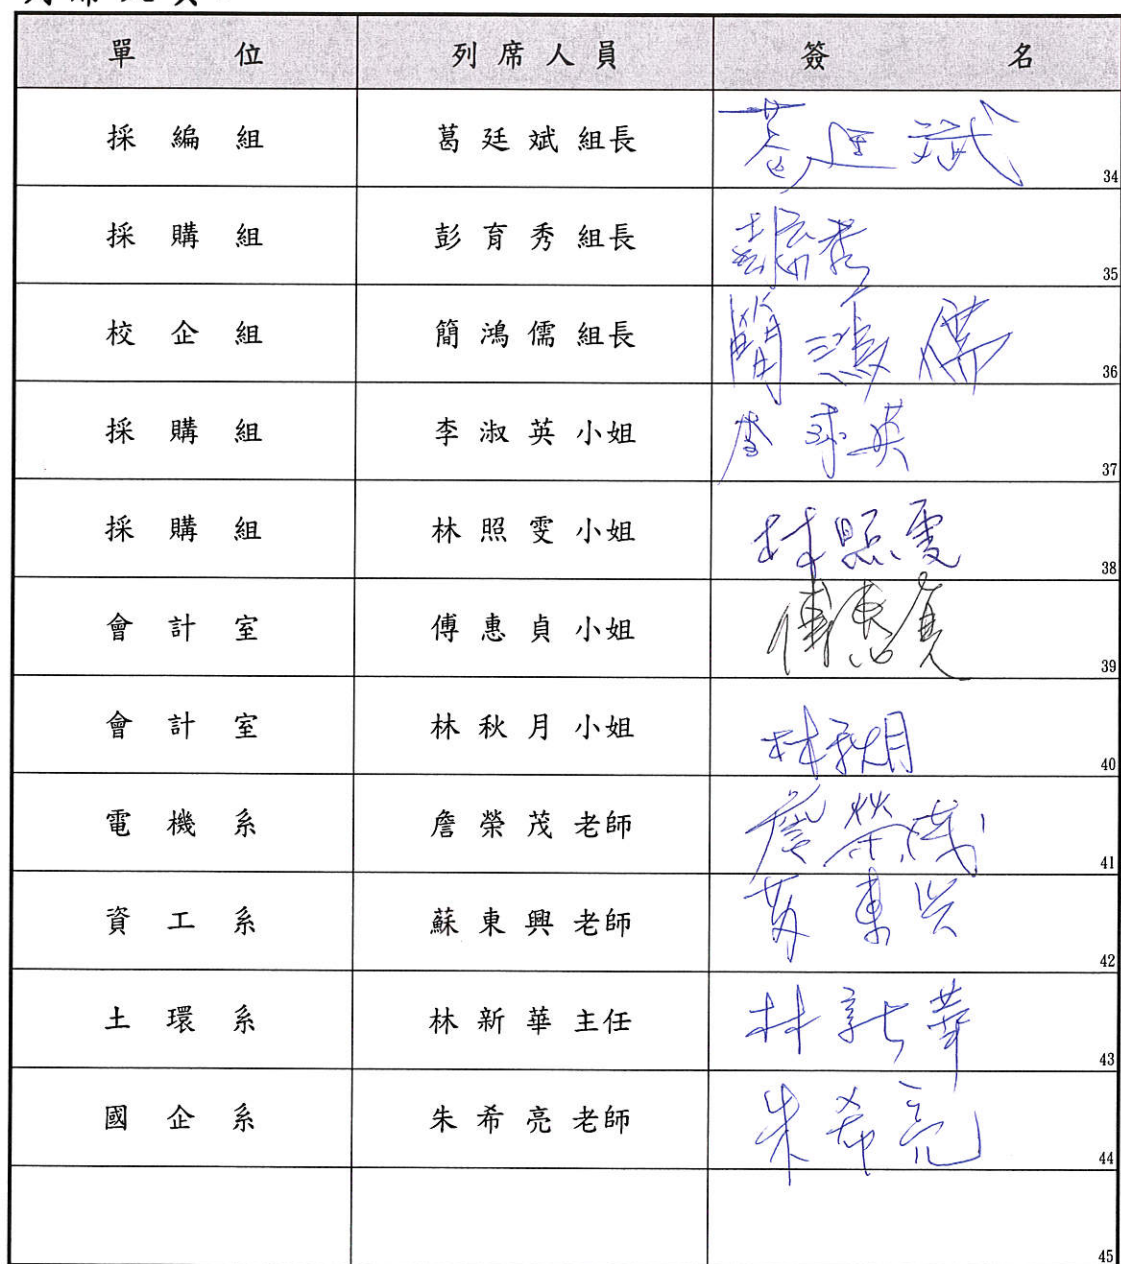 單 位 列 席 人 員 簽 名
採 編 組 葛 廷 斌 組長 葛廷斌 34
採 購 組 彭 育 秀 組長 彭育秀 35
校 企 組 簡 鴻 儒 組長 簡鴻儒 36
採 購 組 李 淑 英 小姐 李淑英 37
採 購 組 林 照 雯 小姐 林照雯 38
會 計 室 傅 惠 貞 小姐 傅惠貞 39
會 計 室 林 秋 月 小姐 林秋月 40
電 機 系 詹 榮 茂 老師 詹榮茂 41
資 工 系 蘇 東 興 老師 苏東兴 42
土 環 系 林 新 華 主任 林新華 43
國 企 系 朱 希 亮 老師 朱希亮 44
45